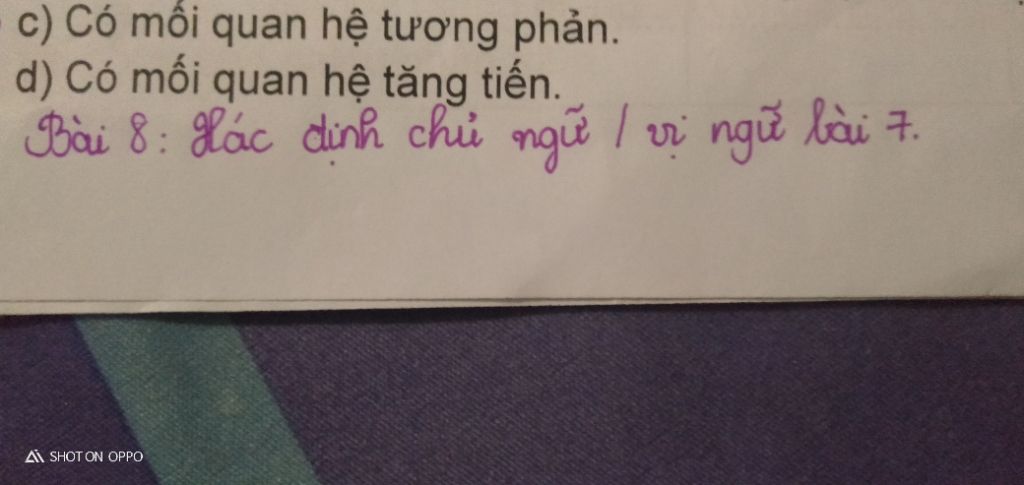 c) Có mối quan hệ tương phản.
d) Có mối quan hệ tăng tiến.
Bài 8: Xác định chủ ngữ / vị ngữ bài 7.
SHOT ON OPPO